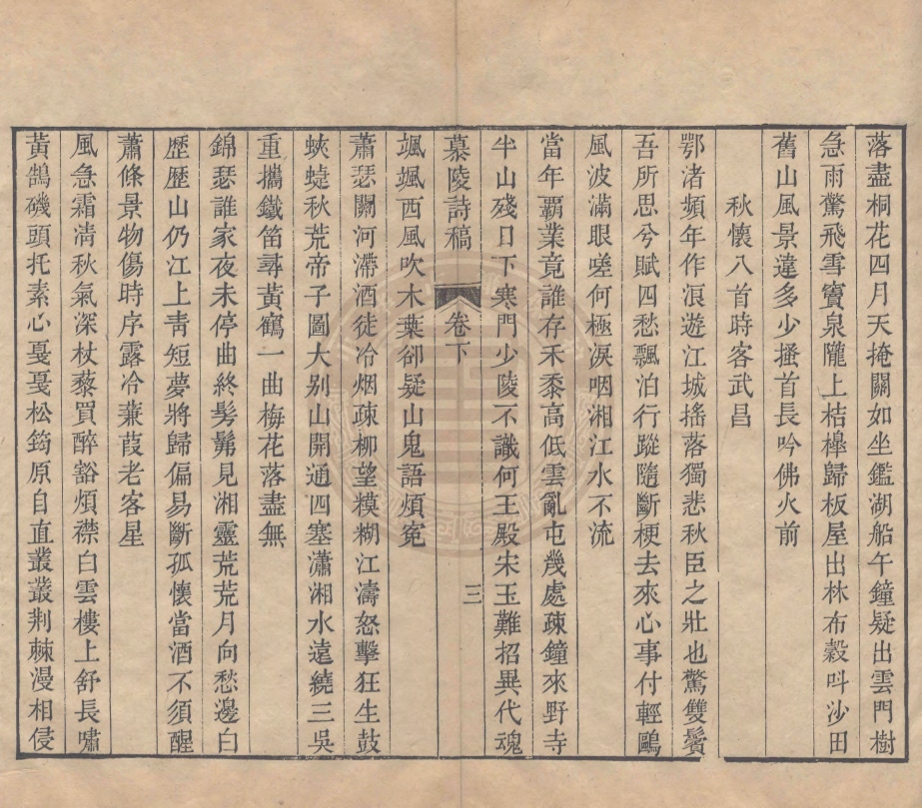 落盡桐花四月天掩關如坐鑑湖船午鐘疑出雲門樹
急雨驚飛雪竇泉隴上桔槹歸板屋出林布穀呌沙田
舊山風景違多少搔首長吟佛火前
秋懷八首時客武昌
鄂渚頻年作浪遊江城搖落獨悲秋臣之壯也驚雙鬢
吾所思兮賦四愁飄泊行蹤隨斷梗去來心事付輕鷗
風波滿眼嗟何極淚咽湘江水不流
當年霸業竟誰存禾黍高低雲亂屯幾處疎鐘來野寺
半山殘日下寒門少陵不識何王殿宋玉難招異代魂
慕陵詩稿
卷下
三
颯颯西風吹木葉卻疑山鬼語煩冤
蕭瑟關河滯酒徒冷烟疎柳望模糊江濤怒擊狂生鼓
蛺蜨秋荒帝子圖大别山開通四塞瀟湘水遠繞三吳
重攜鐵笛尋黃鶴一曲梅花落盡無
錦瑟誰家夜未停曲終髣髴見湘靈荒荒月向愁邊白
歷歷山仍江上靑短夢將歸偏易斷孤懷當酒不須醒
蕭條景物傷時序露冷蒹葭老客星
風急霜淸秋氣深杖藜買醉豁煩襟白雲樓上舒長嘯
黃鵠磯頭托素心戛戛松筠原自直叢叢荆棘漫相侵